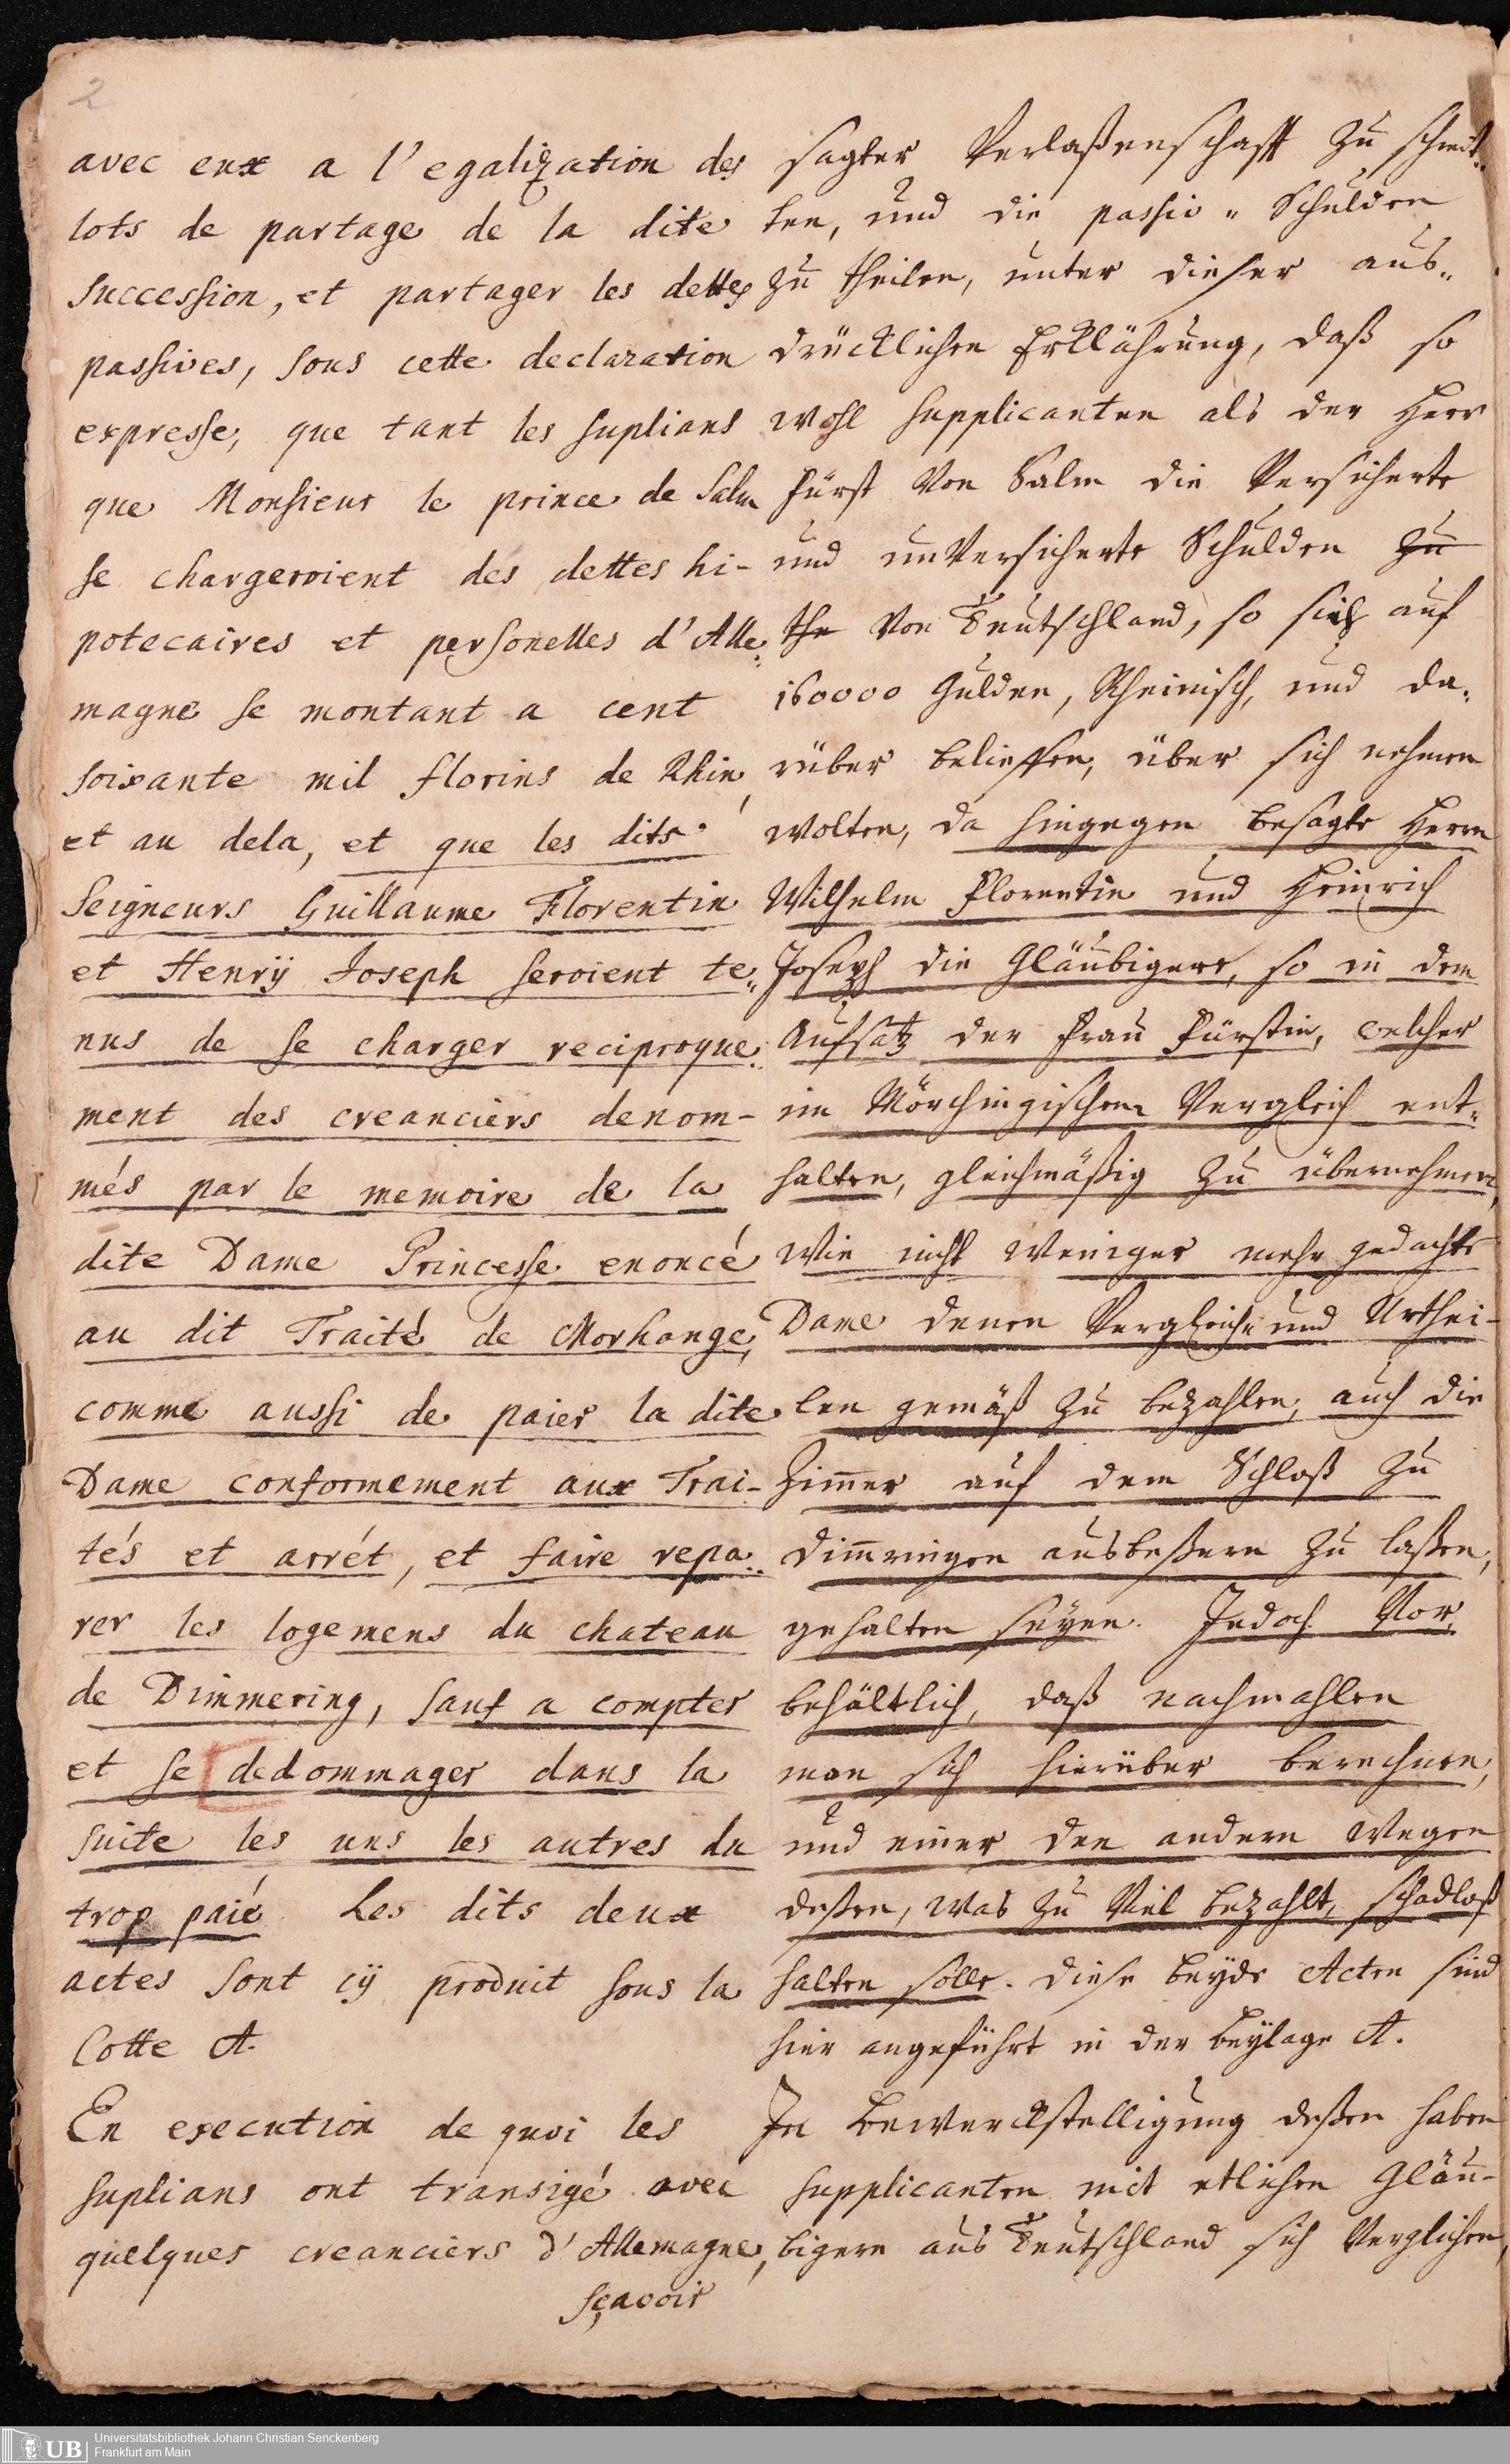 2
avec eux a l'egalization des
lots de partage de la dite
succession, et partager les dettes
passives, sous cette declaration
expresse, que tant les suplians
que Monsieur le prince de Salm
se chargeroient des dettes hi-
potecaires et personelles d'Alle„
magne se montant a cent
soixante mil florins de Rhin,
et au dela, et que les dits
Seigneurs Guillaume Florentin
et Henrÿ Joseph seroient te„
nus de se charger reciproque„
ment des creanciers denom-
més par le memoire de la
dite Dame Princesse enoncé
au dit Traité de Morhange,
comme aussi de paier la dite
Dame conformement aux Trai-
tés et arrét, et faire repa„
rer les logemens du chateau
de Dimmering, sauf a compter
et se dedommager dans la
suite les uns les autres du
trop paié. Les dits deux
actes sont cÿ produit sous la
Cotte A.
En execution de quoi les
suplians ont transigé avec
quelques creanciers d'Allemagne,
sçavoir
sagter Verlaßenschafft zu schreit„
ten, und die passiv„Schulden
zu theilen, unter dieser aus„
drücklichen Erklährung, daß so
wohl supplicanten als der Herr
Fürst von Salm die Versicherte
und unVersicherte Schulden zu
the von Teutschland, so sich auf
160000 Gulden, Rheinisch, und da„
rüber belieffen, über sich nehmen
wolten, da hingegen besagte Herrn
Wilhelm Florentin und Heinrich
Joseph die Gläubigere, so in dem
Aufsatz der Frau Fürstin, welcher
im Mörchingischen Vergleich ent„
halten, gleichmäßig zu übernehmen,
wie nicht weniger mehr gedachte
Dame denen Vergleich„und Urthei-
len gemäß zu bezahlen, auch die
Zimmer auf dem Schloß zu
Dimmringen ausbeßern zu laßen,
gehalten seyen. Jedoch Vor„
behältlich, daß nachmahlen
man sich hierüber berechnen,
und einer den andern wegen
deßen, was zu viel bezahlt, schadloß
halten solle. Diese beyde Acten sind
hier angeführt in der beÿlage A.
In bewerckstelligung deßen haben
supplicanten mit etlichen Gläu-
bigern aus Teutschland sich Verglichen,
UB
Universitätsbibliothek Johann Christian Senckenberg
Frankfurt am Main